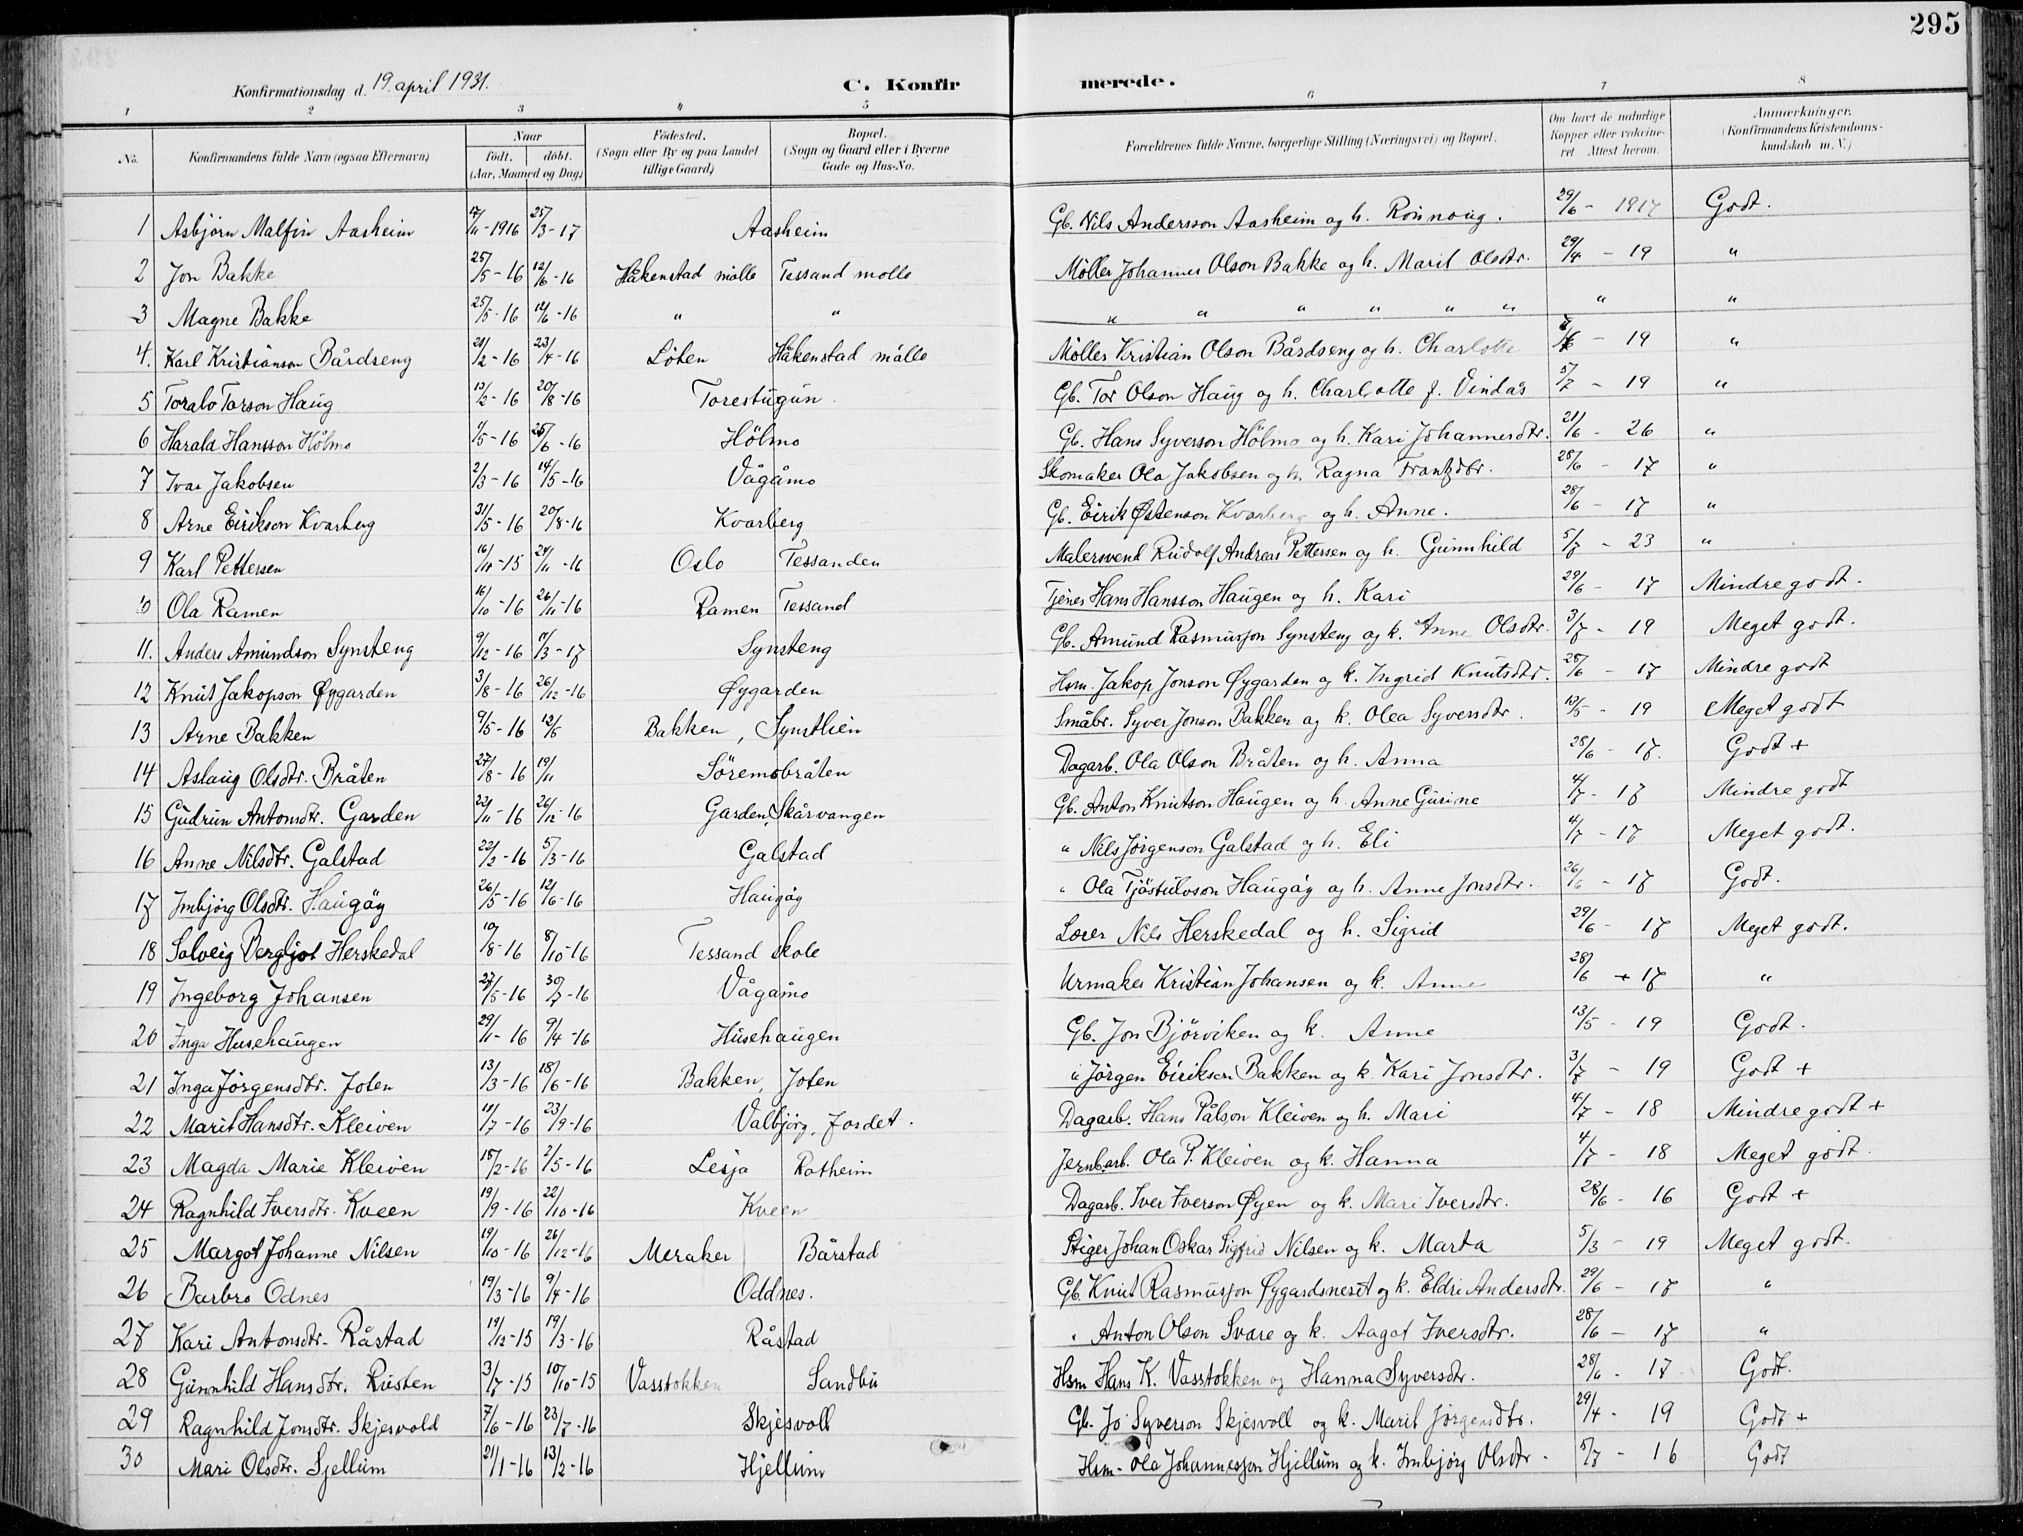 295
Konfirmationsdag d. 19. april 1931.
C. Konfirmerede.
1 2 3 4 5 6 7 8
No. Konfirmandens fulde Navn (ogsaa Efternavn) Naar födt. döbt. (Aar, Maaned og Dag.) Födested. (Sogn eller By og paa Landet tillige Gaard.) Bopæl. (Sogn og Gaard eller i Byerne Gade og Hus-No. Forældrenes fulde Navne, borgerlige Stilling (Næringsvei) og Bopæl. Om havt de naturlige Kopper eller vakcineret. Attest herom. Anmærkninger. (Konfirmandens Kristendomskundskab m. V.)
1 Asbjørn Malfin Aasheim 17/11-1916 25/3-17 Aasheim Gb. Nils Andersson Aasheim og h. Rönnoug. 29/6 - 1917 Godt.
2 Jon Bakke 25/5-16 12/6-16 Håkenstad mølle Tessand mølle Møller Johannes Olson Bakke og h. Marit Olsdtr. 29/4 - 19 "
3 Magne Bakke 25/5-16 12/6-16 " " " " " " " " " "
4. Karl Kristianson Bårdseng 21/2-16 23/4-16 Löten Håkenstad mölle Møller Kristian Olson Bårdseng og h. Charlotte - 19 "
5 Toralv Torson Haug 13/2-16 20/8-16 Torestugun Gb. Tor Olson Haug og h. Charlotte f. Vindås 5/7 - 19 "
6 Harald Hansson Hölmo 1/5-16 25/6-16 Hölmo Gb. Hans Syverson Hölmo og h. Kari Johannesdtr. 21/6 - 26 "
7 Ivar Jakobsen 2/3-16 14/5-16 Vågåmo Skomaker Ola Jakobsen og h. Ragna Frantzdtr. 28/6 - 17 "
8 Arne Eirikson Kvarberg 31/5-16 20/8-16 Kvarberg Gb. Eirik Østenson Kvarberg og h. Anne. 28/6 - 17 "
9 Karl Pettersen 16/11-15 24/11-16 Oslo Tessanden Malersvend Rudolf Andreas Pettersen og h. Gunnhild 5/7 - 23 "
10 Ola Ramen 16/10-16 26/11-16 Ramen Tessand Tjener Hans Hansson Haugen og h. Kari 29/6 - 17 Mindre godt.
11. Anders Amundson Synsteng 9/12-16 11/3-17 Synsteng Gb. Amund Rasmusson Synsteng og k. Anne Olsdtr. 3/7 - 19 Meget godt.
12 Knut Jakopson Øygarden 3/8-16 26/12-16 Øygarden Hsm. Jakop Jonson Øygarden og k. Ingrid Knutsdtr. 28/6 - 17 Mindre godt
13 Arne Bakken 9/5-16 12/5 Bakken, Synstlien Småbr. Syver Jonson Bakken og k. Olea Syversdtr. 13/5 - 19 Meget godt
14 Aslaug Olsdtr. Bråten 27/8-16 19/11 Söremobråten Dagarb. Ola Olson Bråten og h. Anna 28/6 - 17. Godt +
15 Gudrun Antonsdtr. Garden 22/11-16 26/12-16 Garden, Skårvangen Gb. Anton Knutson Haugen og h. Anne Gurine 4/7 - 17 Mindre godt
16 Anne Nilsdtr. Galstad 22/2-16 5/3-16 Galstad " Nils Jørgenson Galstad og h. Eli 4/7 - 17 Meget godt.
17 Imbjörg Olsdtr. Haugøy 26/5-16 12/6-16 Haugøy " Ola Tjöstulvson Haugøy og h. Anne Jonsdtr. 26/6 - 17 Godt.
18 Solveig Bergljot Herskedal 10/8-16 8/10-16 Tessand skole Lærer Nils Herskedal og h. Sigrid 29/6 - 17 Meget godt.
19 Ingeborg Johansen 27/5-16 30/7-16 Vågåmo Urmaker Kristian Johansen og k. Anne 28/6 + 17 "
20 Inga Husehaugen 29/1-16 9/4-16 Husehaugen Gb. Jon Bjørviken og k. Anne 13/5 - 19 Godt.
21 Inga Jörgensdtr. Joten 13/3-16 18/6-16 Bakken, Joten " Jörgen Eirikson Bakken og k. Kari Jonsdtr. 3/7 - 19 Godt +
22 Marit Hansdtr. Kleiven 10/7-16 23/9-16 Valbjörg, Jordet. Dagarb. Hans Pålson Kleiven og h. Mari 4/7 - 18 Mindre godt +
23 Magda Marie Kleiven 18/2-16 2/5-16 Lesja Rotheim Jernb.arb. Ola P. Kleiven og k. Hanna 4/7 - 18 Meget godt.
24 Ragnhild Iversdtr. Kveen 19/9-16 22/10-16 Kveen Dagarb. Iver Iverson Øyen og k. Mari Iversdtr. 28/6 - 16 Godt +
25 Margot Johanne Nilsen 19/10-16 26/12-16 Meraker Bårstad Stiger Johan Oskar Sigfrid Nilsen og k. Marta 5/3 - 19 Meget godt.
26 Barbro Odnes 19/3-16 9/4-16 Oddnes. Gb. Knut Rasmusson Øygardsneset og k. Eldri Andersdtr. 29/6 - 17 "
27 Kari Antonsdtr. Råstad 19/12-15 19/3-16 Råstad " Anton Olson Svare og k. Aagot Iversdtr. 28/6 - 17 "
28 Gunnhild Hansdtr. Rusten 3/7-15 10/10-15 Vasstokken Sandbu Hsm Hans K. Vasstokken og Hanna Syversdtr. 28/6 - 17 Godt.
29 Ragnhild Jonsdtr. Skjesvold 7/6-16 23/7-16 Skjesvoll Gb. Jo Syverson Skjesvoll og k. Marit Jörgensdtr. 29/4 - 19 Godt +
30 Mari Olsdtr. Sjellum 21/1-16 13/2-16 Hjellum Hsm. Ola Johannesson Hjellum og k. Imbjörg Olsdtr. 5/7 - 16 Godt